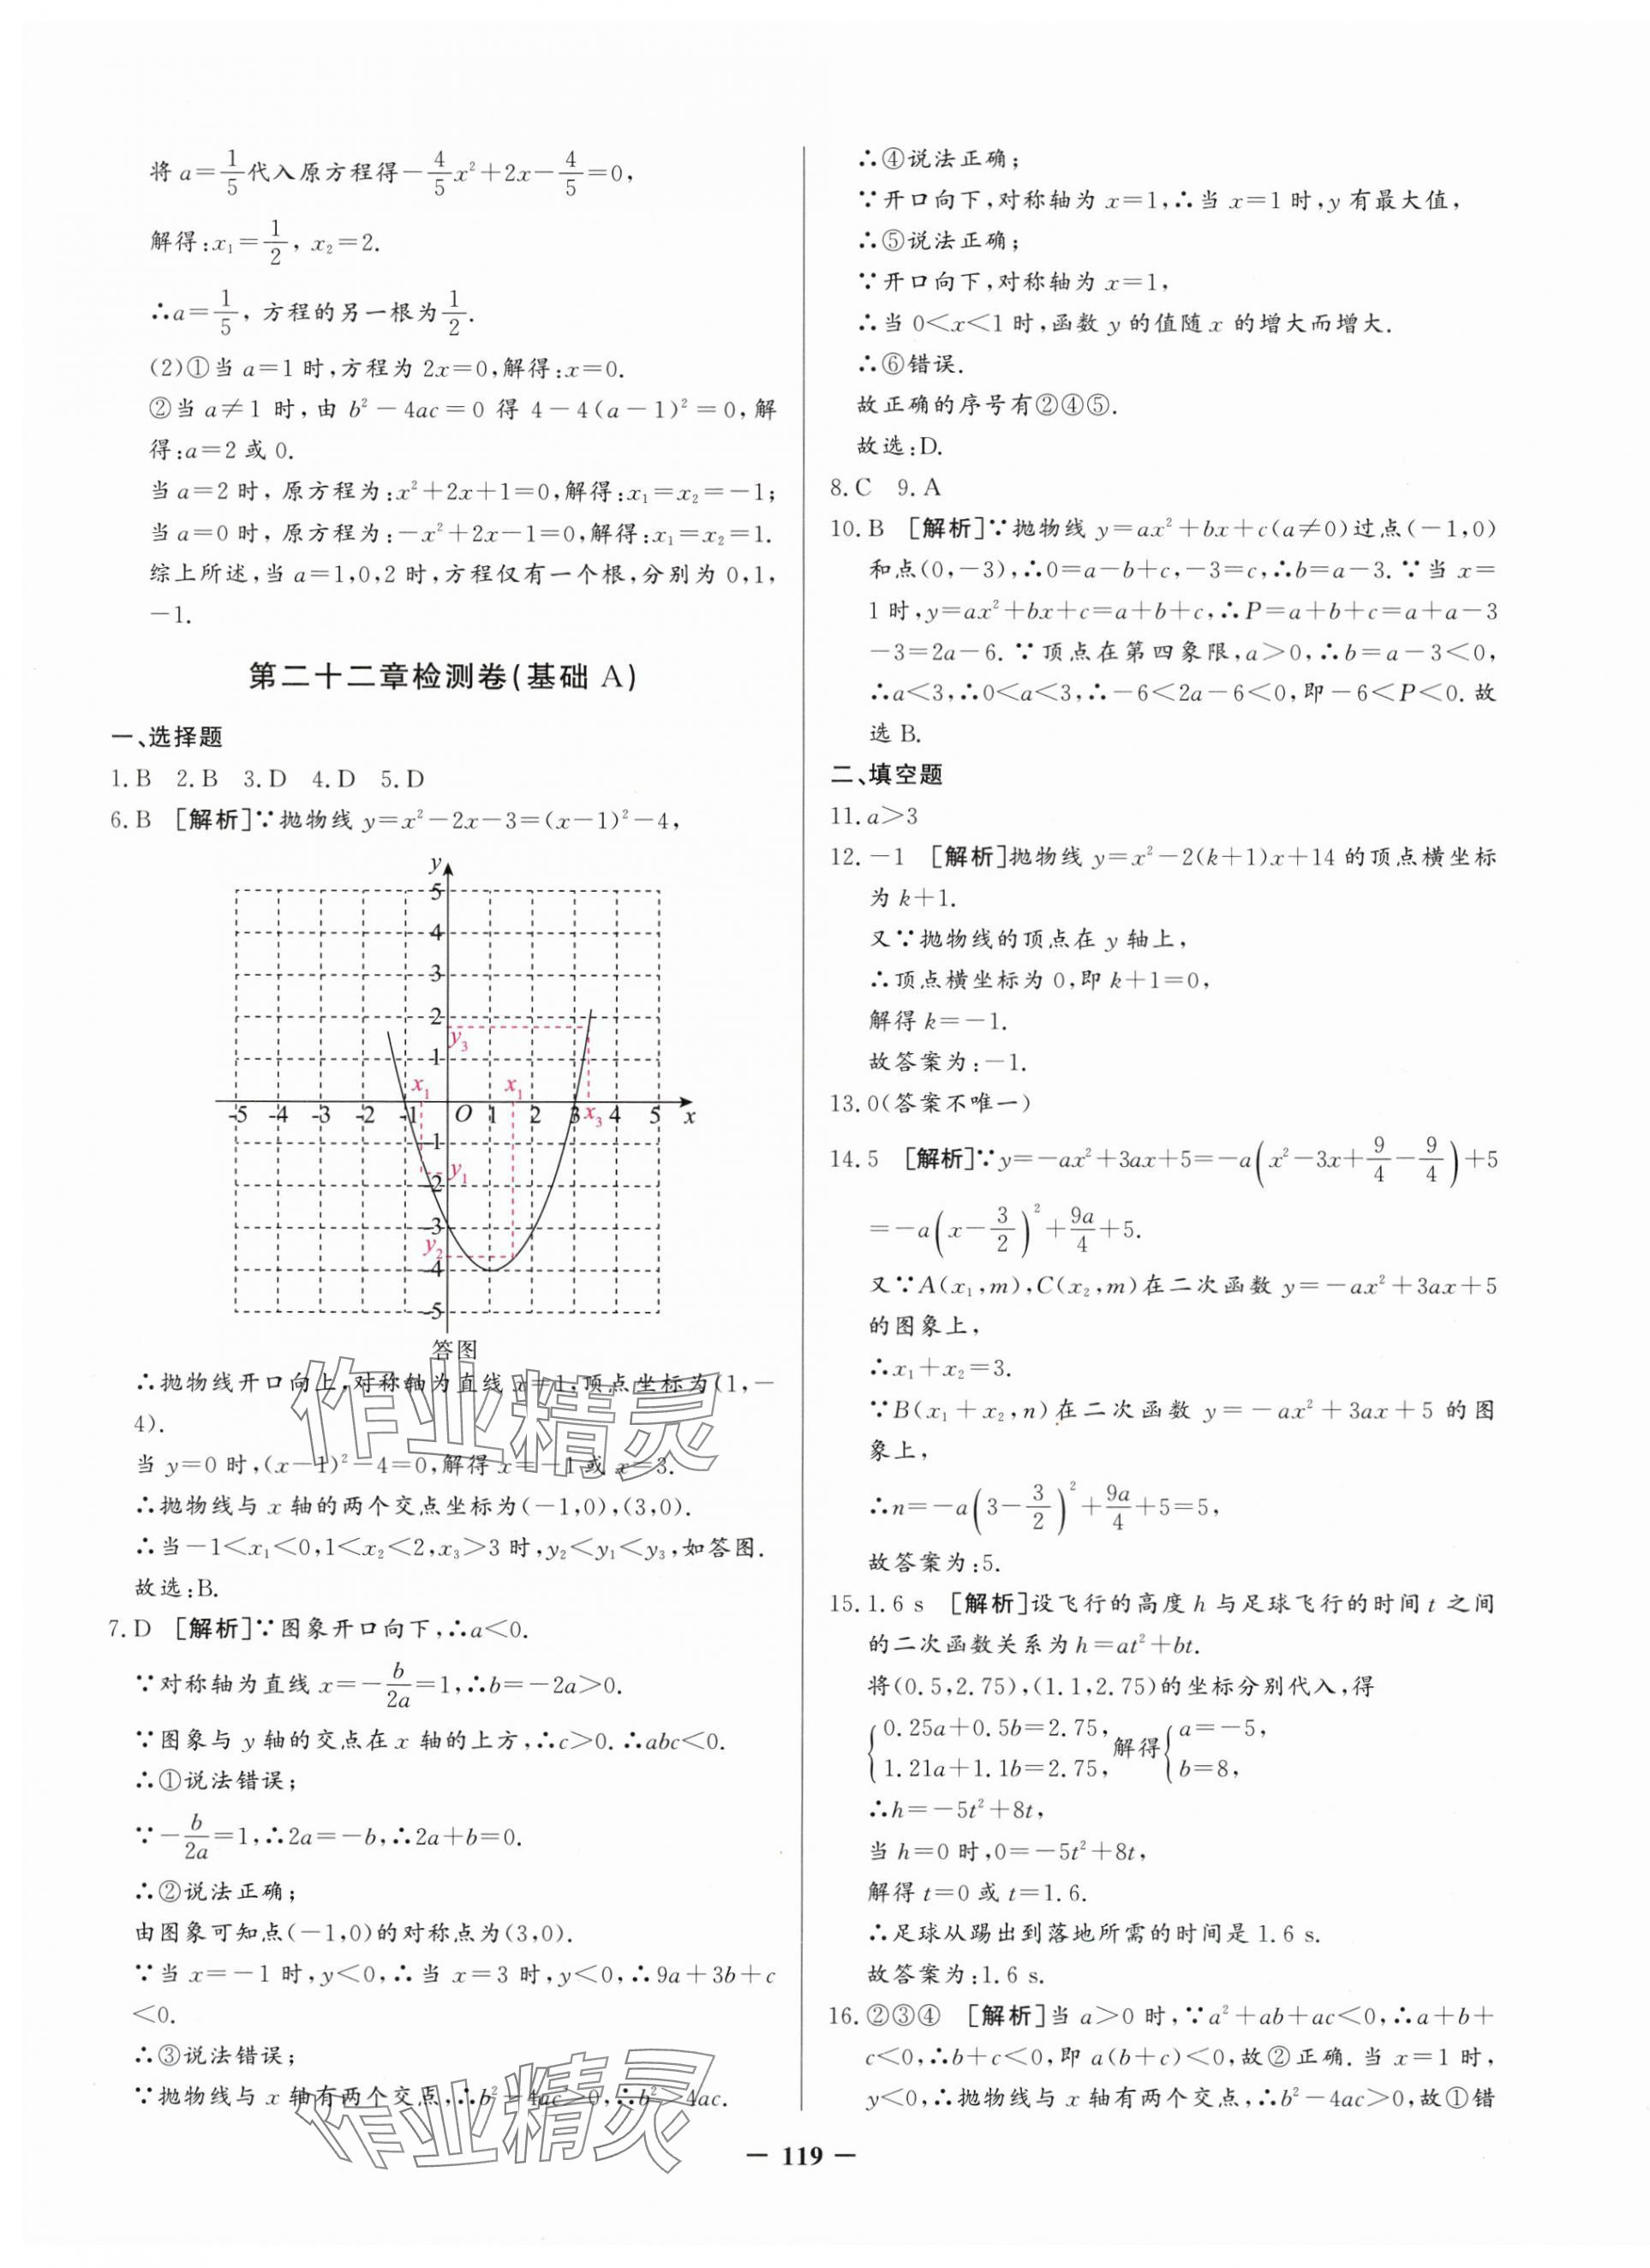 将 a=1/5代入原方程得-4/5x²+2x-4/5=0,
解得:x₁=1/2, x₂=2.
∴a=1/5, 方程的另一根为1/2.
(2)①当 a=1 时,方程为 2x=0,解得:x=0.
②当 a≠1 时,由 b²-4ac=0 得 4-4(a-1)²=0,解
得:a=2 或 0.
当 a=2 时, 原方程为:x²+2x+1=0,解得:x₁=x₂=-1;
当 a=0 时, 原方程为:-x²+2x-1=0,解得:x₁=x₂=1.
综上所述,当 a=1,0,2 时,方程仅有一个根,分别为 0,1,
-1.
第二十二章检测卷(基础 A)
一、选择题
1.B 2.B 3.D 4.D 5.D
6.B [解析]∵抛物线 y=x²-2x-3=(x-1)²-4,
y
5
4
3
2
y₃
1
x₁ x₁
-5 -4 -3 -2 -1 O 1 2 3 x₃ 4 5 x
-1
y₁
-2
-3
y₂
-4
-5
答图
∴抛物线开口向上,对称轴为直线 x=1,顶点坐标为(1,-
4).
当 y=0 时,(x-1)²-4=0,解得 x=-1 或 x=3.
∴抛物线与 x 轴的两个交点坐标为(-1,0),(3,0).
∴当-1<x₁<0,1<x₂<2,x₃>3 时,y₂<y₁<y₃,如答图.
故选:B.
7.D [解析]∵图象开口向下,∴a<0.
∵对称轴为直线 x=-b/2a=1,∴b=-2a>0.
∵图象与 y 轴的交点在 x 轴的上方,∴c>0.∴abc<0.
∴①说法错误;
∵-b/2a=1,∴2a=-b,∴2a+b=0.
∴②说法正确;
由图象可知点(-1,0)的对称点为(3,0).
∵当 x=-1 时,y<0,∴当 x=3 时,y<0,∴9a+3b+c
<0.
∴③说法错误;
∵抛物线与 x 轴有两个交点,∴b²-4ac>0,∴b²>4ac.
∴④说法正确;
∵开口向下,对称轴为 x=1,∴当 x=1 时,y 有最大值,
∴⑤说法正确;
∵开口向下,对称轴为 x=1,
∴当 0<x<1 时,函数 y 的值随 x 的增大而增大.
∴⑥错误.
故正确的序号有②④⑤.
故选:D.
8.C 9.A
10.B [解析]∵抛物线 y=ax²+bx+c(a≠0)过点(-1,0)
和点(0,-3),∴0=a-b+c,-3=c,∴b=a-3.∵当 x=
1 时,y=ax²+bx+c=a+b+c,∴P=a+b+c=a+a-3
-3=2a-6.∵顶点在第四象限,a>0,∴b=a-3<0,
∴a<3,∴0<a<3,∴-6<2a-6<0,即-6<P<0.故
选 B.
二、填空题
11.a>3
12.-1 [解析]抛物线 y=x²-2(k+1)x+14 的顶点横坐标
为 k+1.
又∵抛物线的顶点在 y 轴上,
∴顶点横坐标为 0,即 k+1=0,
解得 k=-1.
故答案为:-1.
13.0(答案不唯一)
14.5 [解析]∵y=-ax²+3ax+5=-a(x²-3x+9/4-9/4)+5
=-a(x-3/2)²+9a/4+5.
又∵A(x₁,m),C(x₂,m)在二次函数 y=-ax²+3ax+5
的图象上,
∴x₁+x₂=3.
∵B(x₁+x₂,n)在二次函数 y=-ax²+3ax+5 的图
象上,
∴n=-a(3-3/2)²+9a/4+5=5,
故答案为:5.
15.1.6 s [解析]设飞行的高度 h 与足球飞行的时间 t 之间
的二次函数关系为 h=at²+bt.
将(0.5,2.75),(1.1,2.75)的坐标分别代入,得
{0.25a+0.5b=2.75, 1.21a+1.1b=2.75, 解得{a=-5, b=8,
∴h=-5t²+8t,
当 h=0 时,0=-5t²+8t,
解得 t=0 或 t=1.6.
∴足球从踢出到落地所需的时间是 1.6 s.
故答案为:1.6 s.
16.②③④ [解析]当 a>0 时,∵a²+ab+ac<0,∴a+b+
c<0,∴b+c<0,即 a(b+c)<0,故②正确.当 x=1 时,
y<0,∴抛物线与 x 轴有两个交点,∴b²-4ac>0,故①错
作业精灵
作业精灵
— 119 —